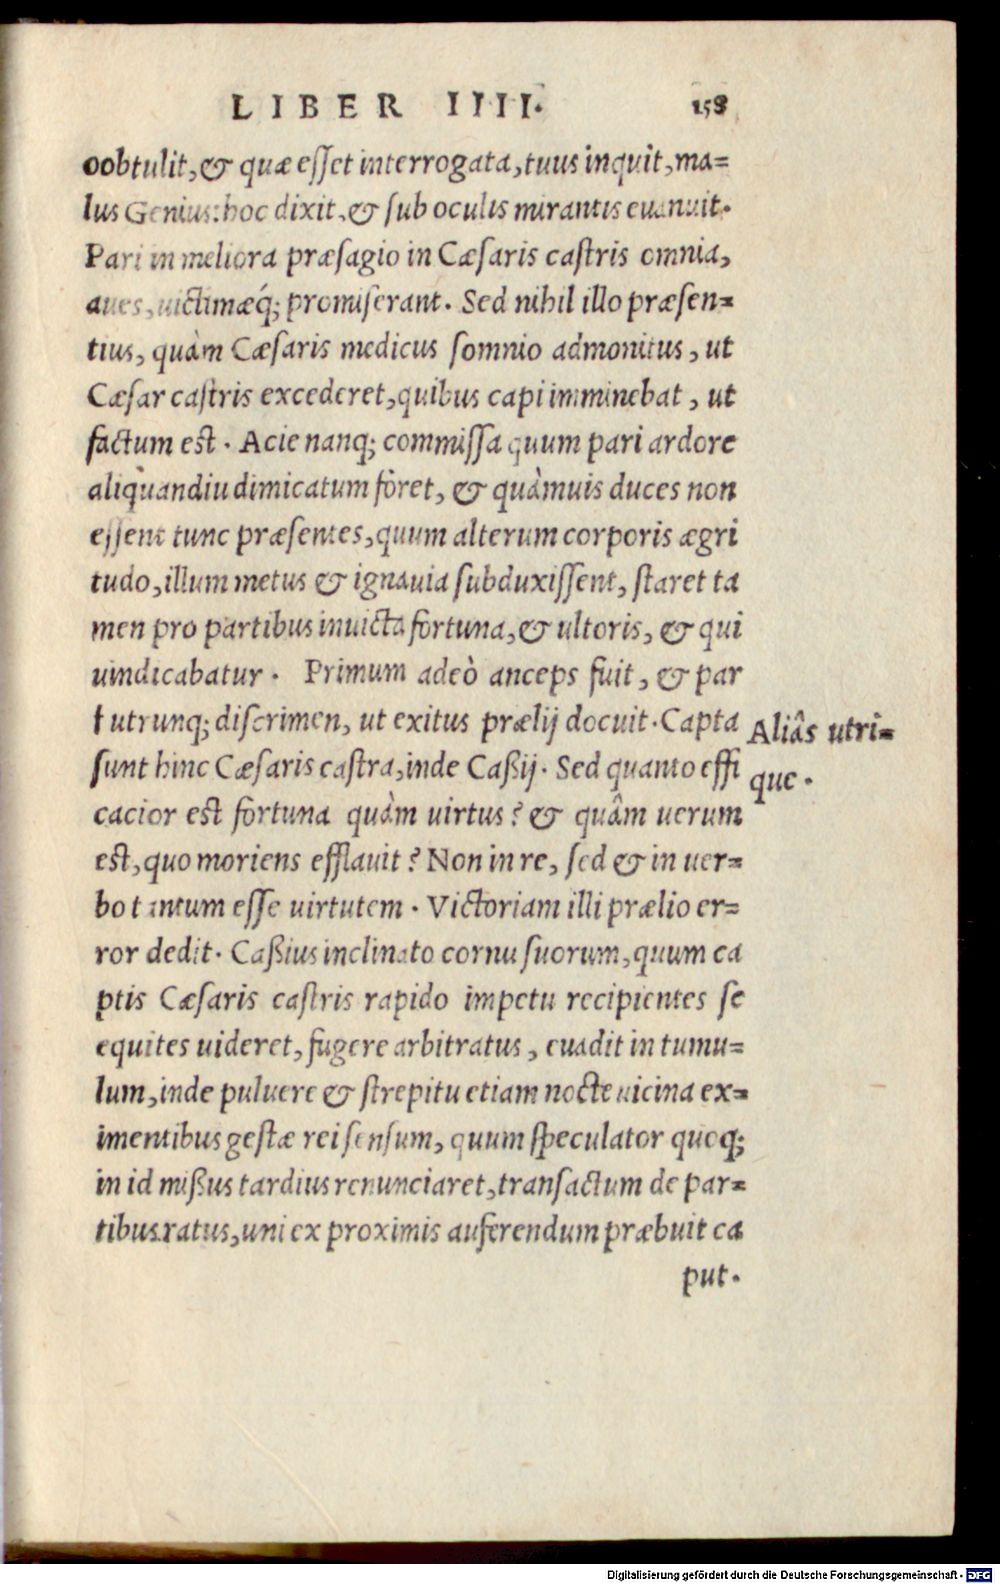 LIBER IIII. 158
oobtulit, & quæ esset interrogata, tuus inquit, ma=
lus Genius: hoc dixit, & sub oculis mirantis euanuit.
Pari in meliora præsagio in Cæsaris castris omnia,
aues, uictimæq́; promiserant. Sed nihil illo præsen=
tius, quàm Cæsaris medicus somnio admonitus, ut
Cæsar castris excederet, quibus capi imminebat, ut
factum est. Acie nanq; commissa quum pari ardore
aliquandiu dimicatum fôret, & quàmuis duces non
essent tunc præsentes, quum alterum corporis ægri
tudo, illum metus & ignauia subduxissent, staret ta
men pro partibus inuicta fortuna, & ultoris, & qui
uindicabatur. Primum adeò anceps fuit, & par
† utrunq; discrimen, ut exitus prælij docuit. Capta
Aliâs utri=
sunt hinc Cæsaris castra, inde Caßij. Sed quanto effi
que.
cacior est fortuna quàm uirtus? & quâm uerum
est, quo moriens efflauit? Non in re, sed & in uer=
bo tantum esse uirtutem. Victoriam illi prælio er=
ror dedit. Caßius inclinato cornu suorum, quum ca
ptis Cæsaris castris rapido impetu recipientes se
equites uideret, fugere arbitratus, euadit in tumu=
lum, inde puluere & strepitu etiam nocte uicina ex=
imentibus gestæ rei sensum, quum speculator quoq;
in id mißus tardius renunciaret, transactum de par=
tibus ratus, uni ex proximis auferendum præbuit ca
put.
Digitalisierung gefördert durch die Deutsche Forschungsgemeinschaft - DFG